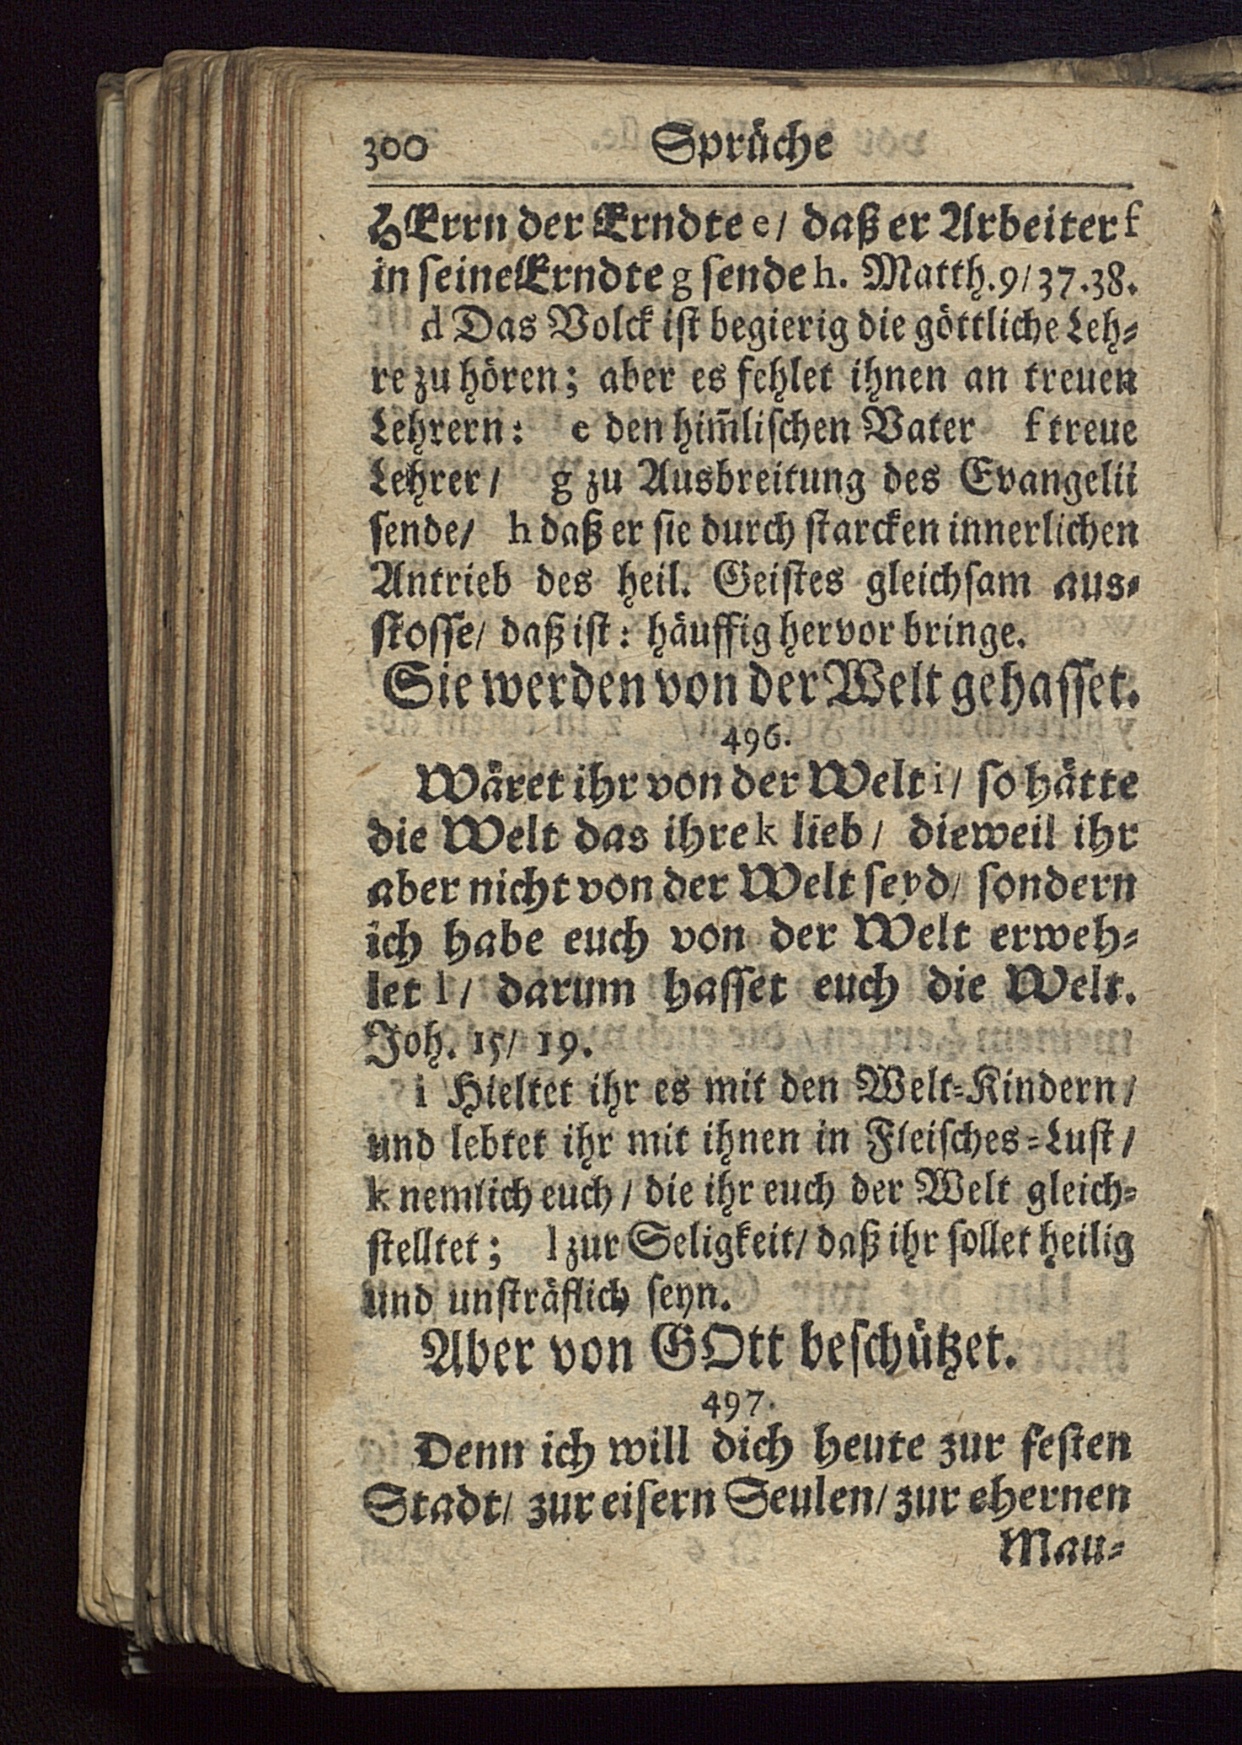 300 Sprüche
HErrn der Erndte e/ daß er Arbeiter f
in seine Erndte g sende h. Matth. 9/37.38.
d Das Volck ist begierig die göttliche Leh-
re zu hören; aber es fehlet ihnen an treuen
Lehrern: e den him̃lischen Vater f treue
Lehrer/ g zu Ausbreitung des Evangelii
sende/ h daß er sie durch starcken innerlichen
Antrieb des heil. Geistes gleichsam aus-
stosse/ daß ist: häuffig hervor bringe.
Sie werden von der Welt gehasset.
496.
Wäret ihr von der Welt i/ so hätte
die Welt das ihre k lieb/ dieweil ihr
aber nicht von der Welt seyd/ sondern
ich habe euch von der Welt erweh-
let l/ darum hasset euch die Welt.
Joh. 15/ 19.
i Hieltet ihr es mit den Welt-Kindern/
und lebtet ihr mit ihnen in Fleisches-Lust/
k nemlich euch/ die ihr euch der Welt gleich-
stelltet; l zur Seligkeit/ daß ihr sollet heilig
und unsträflich seyn.
Aber von GOtt beschützet.
497.
Denn ich will dich heute zur festen
Stadt/ zur eisern Seulen/ zur ehernen
Mau-